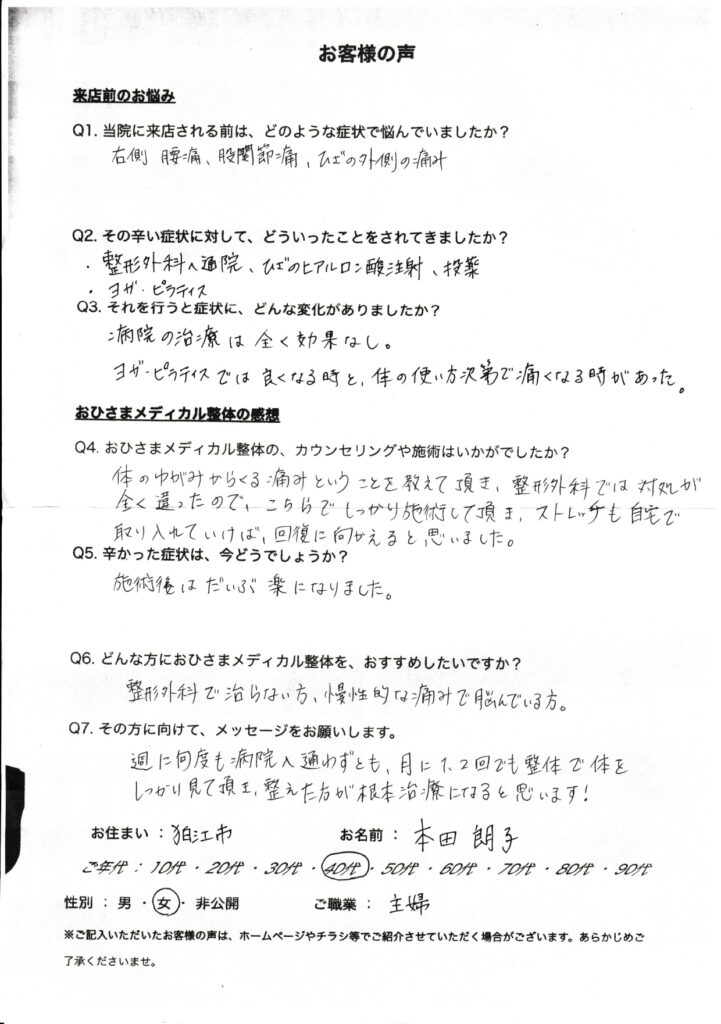 お客様の声
来店前のお悩み
Q1. 当院に来店される前は、どのような症状で悩んでいましたか？
右側 腰痛、股関節痛、ひざの外側の痛み
Q2. その辛い症状に対して、どういったことをされてきましたか？
・整形外科へ通院、ひざのヒアルロン酸注射、投薬
・ヨガ・ピラティス
Q3. それを行うと症状に、どんな変化がありましたか？
病院の治療は全く効果なし。
ヨガ・ピラティスでは良くなる時と、体の使い方次第で痛くなる時があった。
おひさまメディカル整体の感想
Q4. おひさまメディカル整体の、カウンセリングや施術はいかがでしたか？
体のゆがみからくる痛みということを教えて頂き、整形外科では対処が
全く違ったので、こちらでしっかり施術して頂き、ストレッチも自宅で
取り入れていけば、回復に向かえると思いました。
Q5. 辛かった症状は、今どうでしょうか？
施術後はだいぶ楽になりました。
Q6. どんな方におひさまメディカル整体を、おすすめしたいですか？
整形外科で治らない方、慢性的な痛みで脳んでいる方。
Q7. その方に向けて、メッセージをお願いします。
週に何度も病院へ通わずとも、月に1、2回でも整体で体を
しっかり見て頂き、整えた方が根本治療になると思います！
お住まい：狛江市 お名前：本田 朗子
ご年代：10代・20代・30代・40代・50代・60代・70代・80代・90代
性別：男・女・非公開 ご職業：主婦
※ご記入いただいたお客様の声は、ホームページやチラシ等でご紹介させていただく場合がございます。あらかじめご
了承くださいませ。